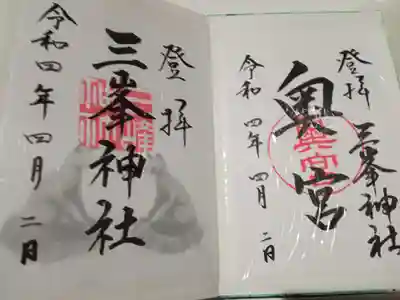 登拝
三峯神社
奥宮
令和四年四月二日
登拝
三峯神社
令和四年四月二日